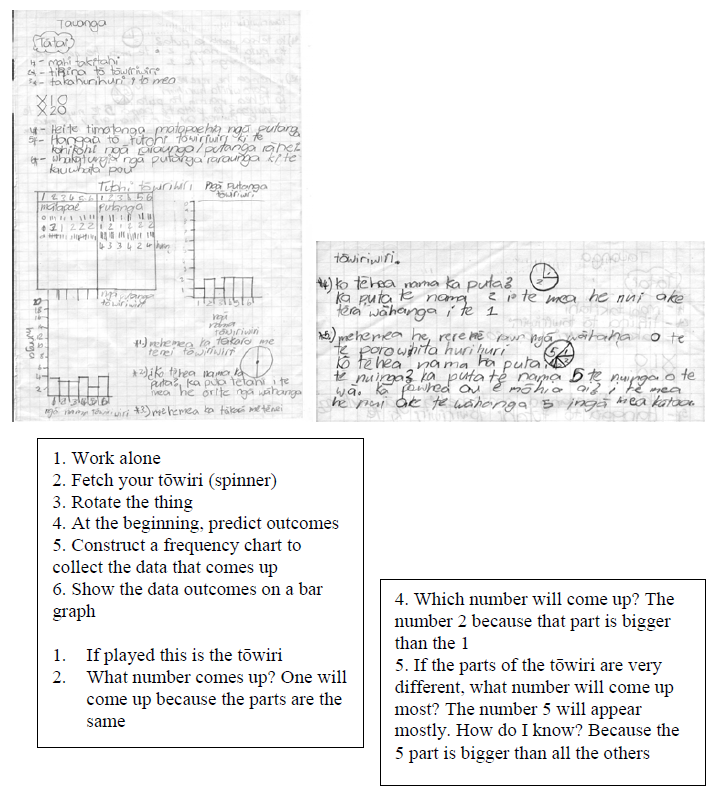 Tauanga
Tātai
1# - mahi takitahi
2# - tikina tō tōwiriwiri
3# - takahurihuri i to mea
X10
X20
4# - Hei te timatanga matapaehia ngā putanga
5# - Hangaia tō tūtohi tōwiriwiri ki te
kohikohi ngā raraunga/putanga
6# - whakaaturia ngā putanga raraunga ki te
kauwhata pou
Tūtohi tōwiriwiri
Ngā Putanga
tōwiriwiri
1 2 3 4 5 6 1 2 3 4 5 6
matapae putanga
4 3 3 4 2 4
ngā nama tōwiriwiri
*1) mehemea ka tākaro me
tēnei tōwiriwiri
*2) ko tēhea nama ka
puta? ka puta tetahi i te
mea he ōrite ngā wāhanga
*3) mehemea ka tākaro me tēnei
tōwiriwiri.
*4) ko tēhea nama ka puta?
ka puta te nama 2 i te mea he nui ake
tēra wāhanga i te 1
*5) mehemea he rerekē ngā wāhanga o te
te porowhita hurihuri
ko tēhea nama ka puta i
te nuinga? ka puta te nama 5 te nuinga o te
wā. ka pēwhea au e mōhio ai? i te mea
he nui ake te wāhanga 5 i ngā mea katoa.
1. Work alone
2. Fetch your tōwiri (spinner)
3. Rotate the thing
4. At the beginning, predict outcomes
5. Construct a frequency chart to
collect the data that comes up
6. Show the data outcomes on a bar
graph
1. If played this is the tōwiri
2. What number comes up? One will
come up because the parts are the
same
4. Which number will come up? The
number 2 because that part is bigger
than the 1
5. If the parts of the tōwiri are very
different, what number will come up
most? The number 5 will appear
mostly. How do I know? Because the
5 part is bigger than all the others